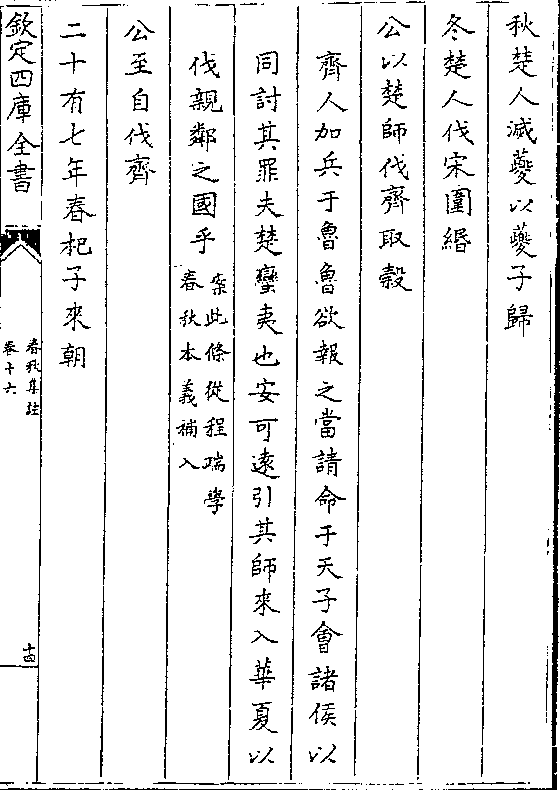 秋楚人滅夔以夔子歸
冬楚人伐宋圍緡
公以楚師伐齊取穀
齊人加兵于魯魯欲報之當請命于天子會諸侯以
同討其罪夫楚蠻夷也安可遠引其師來入華夏以
伐親鄰之國乎
案此條從程端學
春秋本義補入
公至自伐齊
二十有七年春杞子來朝
欽定四庫全書
春秋集註
卷十六
十四